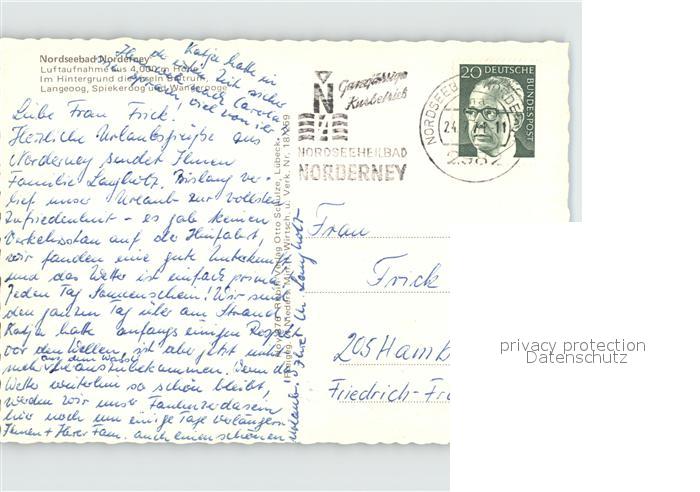 Nordseebad Norderney
Luftaufnahme aus 4,000 m Höhe
Im Hintergrund die Inseln Baltrum,
Langeoog, Spiekeroog und Wangerooge
Liebe Frau Frick!
Herzliche Urlaubsgrüße aus
Norderney sendet Ihnen
Familie Langholz. Bislang ver-
lief unser Urlaub zur vollsten
Zufriedenheit - es gab keinen
Verkehrsstau auf der Hinfahrt,
wir fanden eine gute Unterkunft
und das Wetter ist einfach prima.
Jeden Tag Sonnenschein! Wir sind
den ganzen Tag über am Strand.
Katja hatte anfangs einigen Respekt
vor den Wellen, ist aber jetzt nicht
mehr aus dem Wasser herauszubekommen. Wenn das
Wetter weiterhin so schön bleibt,
werden wir unser Faulenzerdasein
hier noch um einige Tage verlängern.
Ihnen + Ihrer Fam. auch einen schönen
Urlaub. Ihre Chr. Langholz
Katja hatte in
der ersten Zeit sicher
nach Carola
viel von ihr
Ganzjähriger
Kurbetrieb
N
NORDSEEHEILBAD
NORDERNEY
NORDSEEBAD NORDERNEY
24.7.74-11
2982
20 DEUTSCHE
BUNDESPOST
Verlag Otto Schulze, Lübeck,
Freigeg. d. Nieders. Min. f. Wirtsch. u. Verk. Nr. 18/1259
Frau
Frick
205 Hamb
Friedrich-Fr
privacy protection
Datenschutz